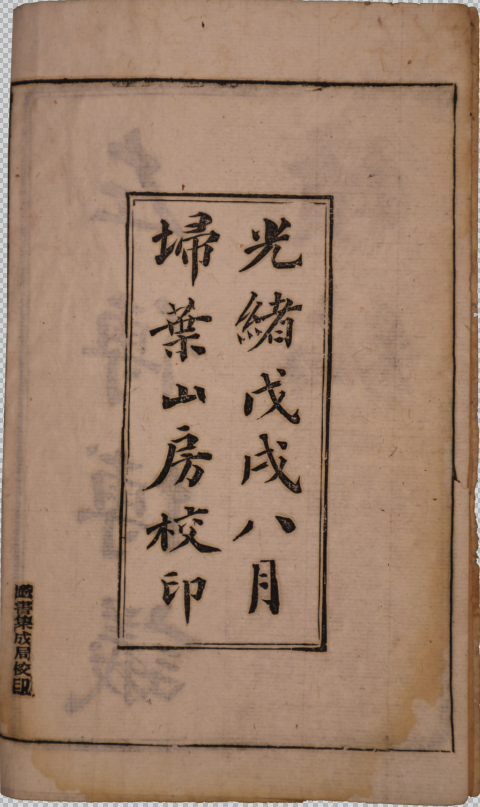 光緒戊戌八月
埽葉山房校印
圖書集成局校印